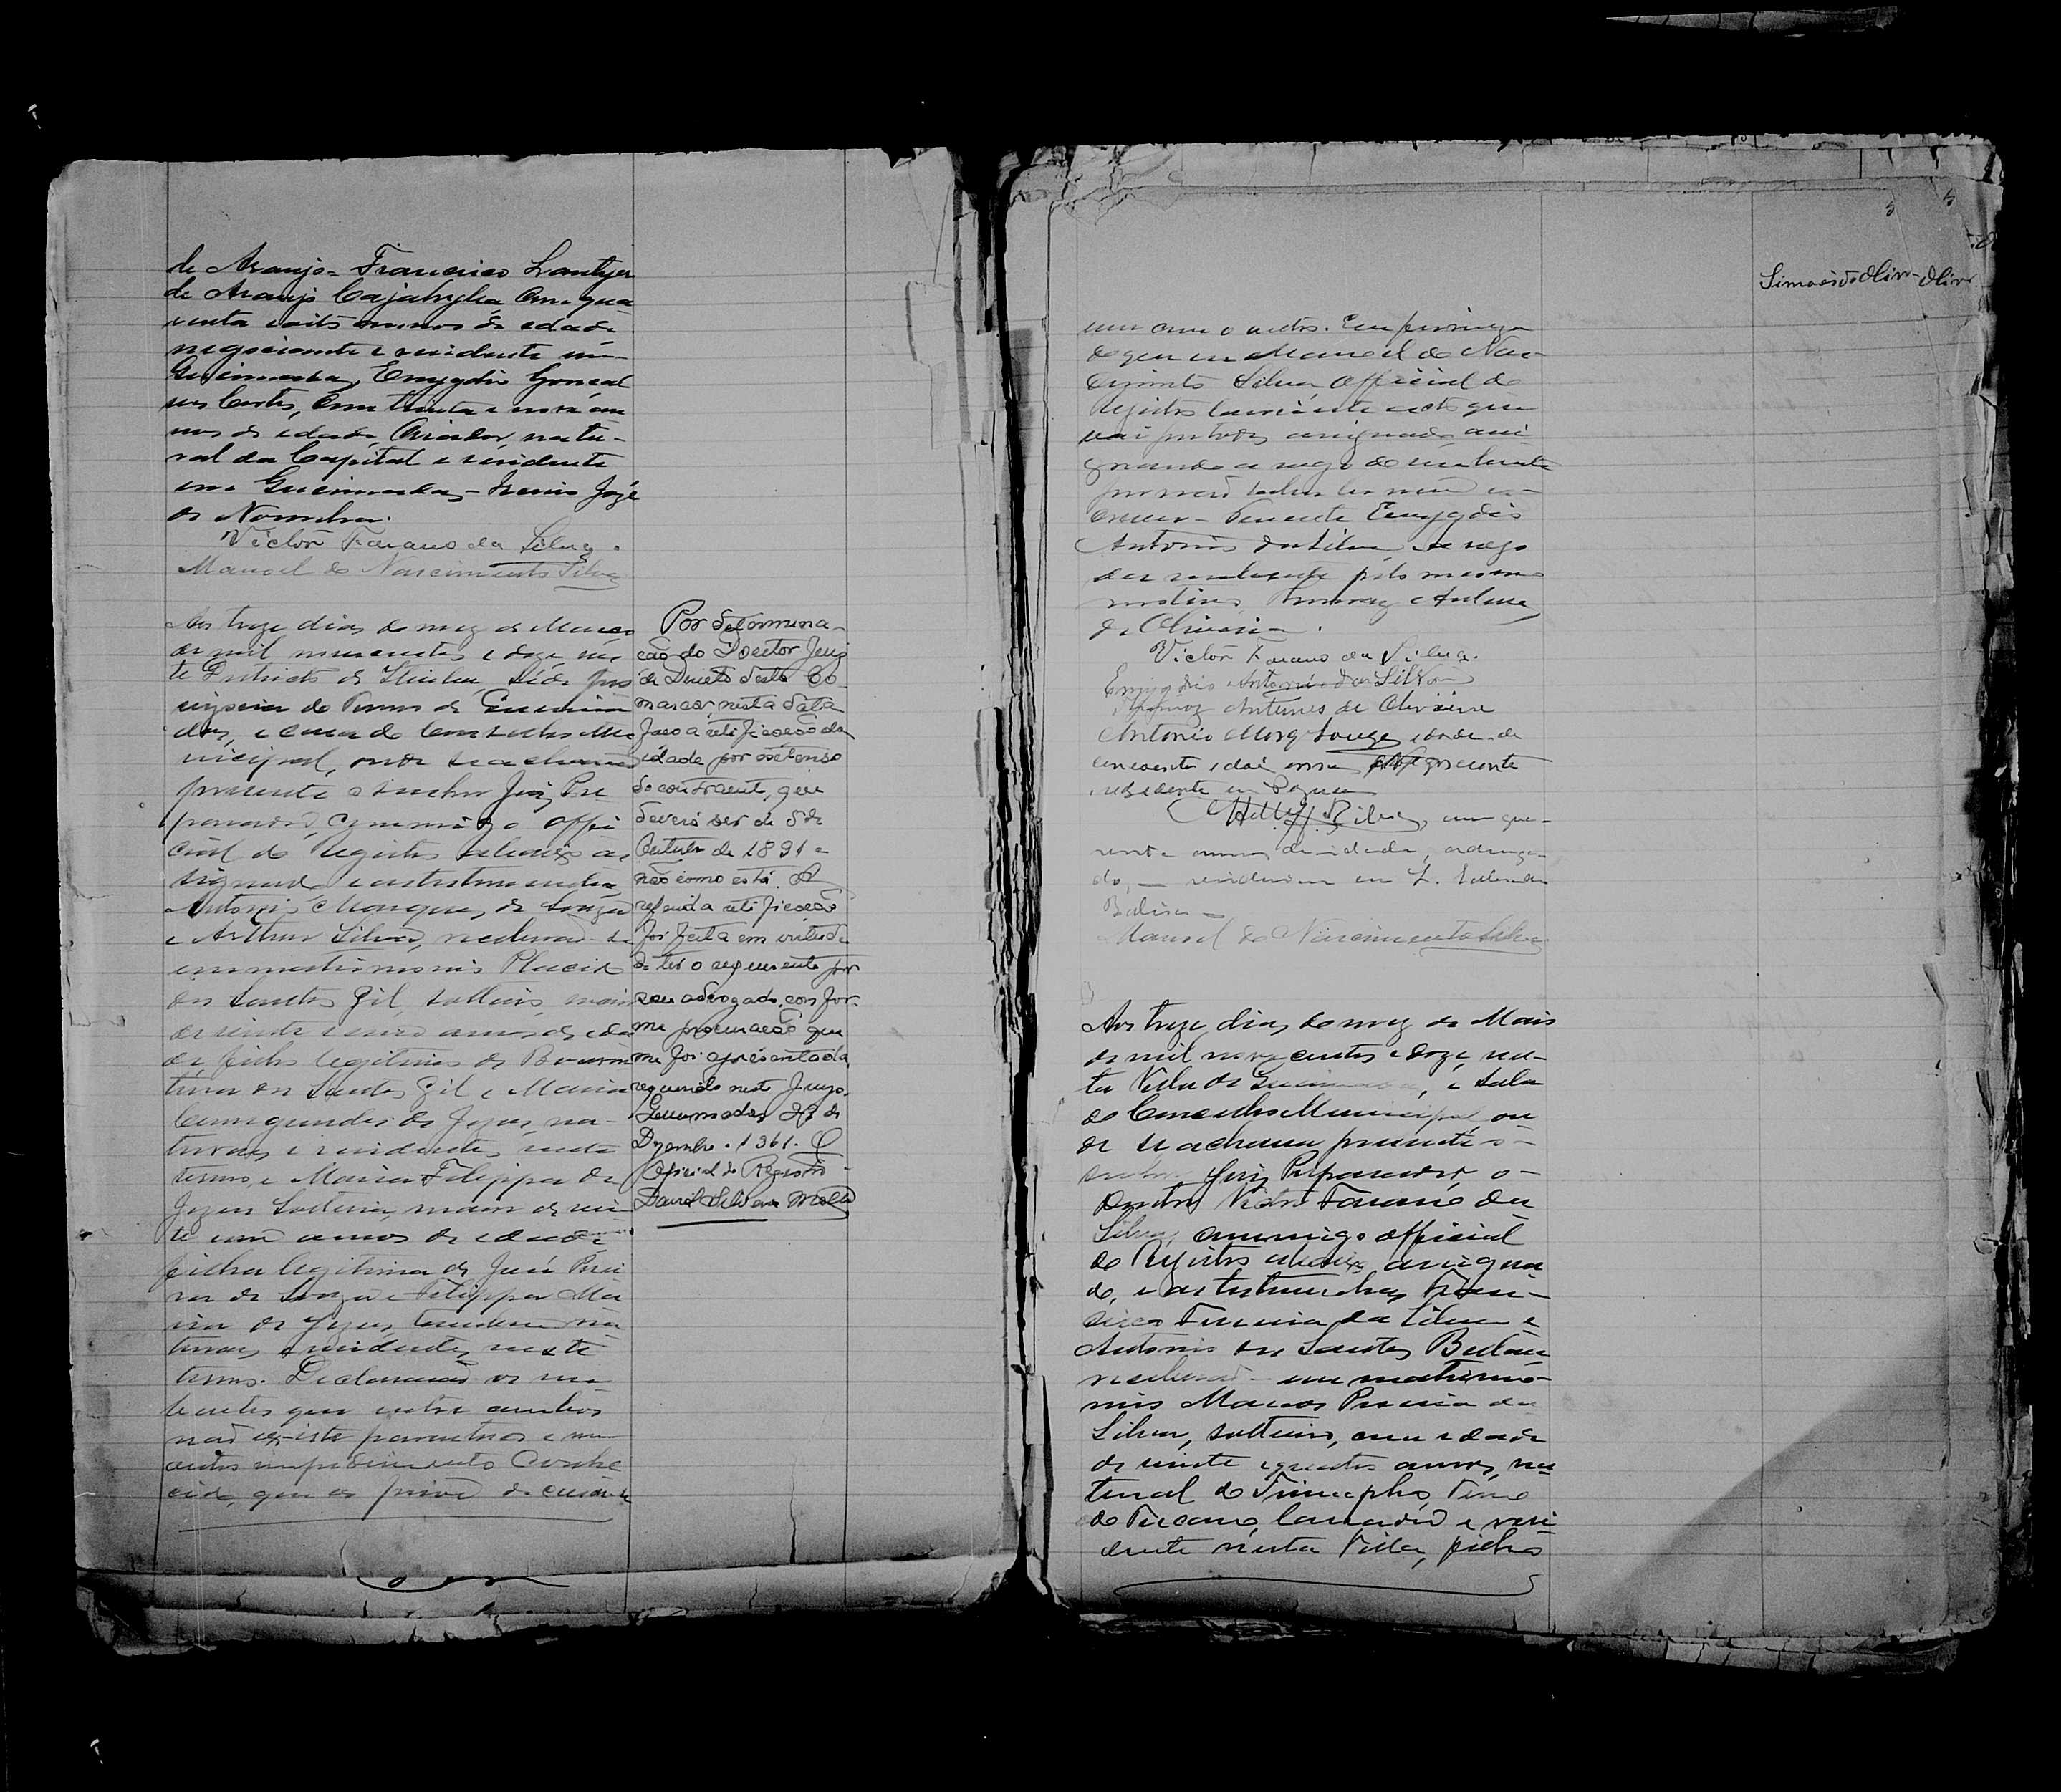 de Araujo = Francisco Lantyer
de Araujo Cajahyba, com qua
renta e oito annos de edade
negociante e residente em
Queimadas, Emygdio Goncal
ves Cortes, com trinta e nove an
nos de edade, Criador, natu-
ral da Capital e residente
em Queimadas - Irenio José
de Noronha.
Victor Farano da Silva.
Manoel do Nascimento Silva
Aos treze dias do mez de Marco
de mil novecentos e doze, nes
te Districto de Itiuba, séde pro
visoria do Termo de Queima
das, e Casa do Conselho Mu
nicipal, onde se achava
presente o senhor Juiz Pre
parador, commigo offi
cial do Registro abaixo as
signado e as testemunhas
Antonio Marques de Souza
e Arthur Silva, receberão-se
em matrimonio Placido
dos Santos Gil, solteiro, maior
de vinte e cinco annos de eda
de, filho legitimo de Boaven
tura dos Santos Gil e Maria
de Jezus, na-
turaes e residentes neste
termo, e Maria Filippa de
Jezus solteira, maior de vin
te um annos de edade
filha legitima de José Perei
ra de Souza e Filippa Ma
ria de Jezus, tambem na
turaes e residentes neste
termo. Declararão os nu
bentes que entre ambos
não existe parentesco e nem
outro impedimento conhe
cido, que os prive de casar
Por determina-
ção do Doutor Juiz
de Direito desta Co
marca, nesta data
faço a retificacão da
idade por extenso
do contraente, que
deverá ser de 5 de
Outubro de 1891 e
não como está. A
referida retificação
foi feita em virtude
de ter o requerente por
seu advogado, confor-
me procuração que
me foi apresentada,
requerido neste Juizo.
Queimadas, 23 de
Dezembro. 1961. O
Oficial do Registro
Simões de Oliv- Oliv
um com o outro. Em firmeza
do que eu Manoel do Nas-
cimento Silva Official do
Registro lavrei este acto que
vai por todos assignado, assi
gnando a rogo do nubente
por não saber ler nem es-
crever - Tenente Emygdio
Antonio da Silva, e a rogo
da nubente pelo mesmo
motivo, Thomaz Antunes
de Oliveira.
Victor Farano da Silva.
Emygdio Antonio da Silva
Thomaz Antunes de Oliveira
Antonio Marq Souza, edade de
cincoenta e dois annos, negociante
residente em
Silva, com qua-
renta annos de edade,
do, - residente em
Bahia -
Manoel do Nascimento Silva
Aos treze dias do mez de Maio
de mil novecentos e doze, nes-
ta Villa de Queimadas, e sala
do Conselho Municipal, on
de se achava presente o
senhor Juiz Preparador, o
Doutor Victor Farano da
Silva, commigo official
do Registro abaixo assigna
do, e as testemunhas Fran-
cisco Ferreira da Silva e
Antonio dos Santos
receberão- em matrimo-
nio Marcos Pereira da
Silva, solteiro, com edade
de vinte e quatro annos, na
tural do Triumpho, Termo
do Tucano, lavrador e resi
dente nesta Villa, filho